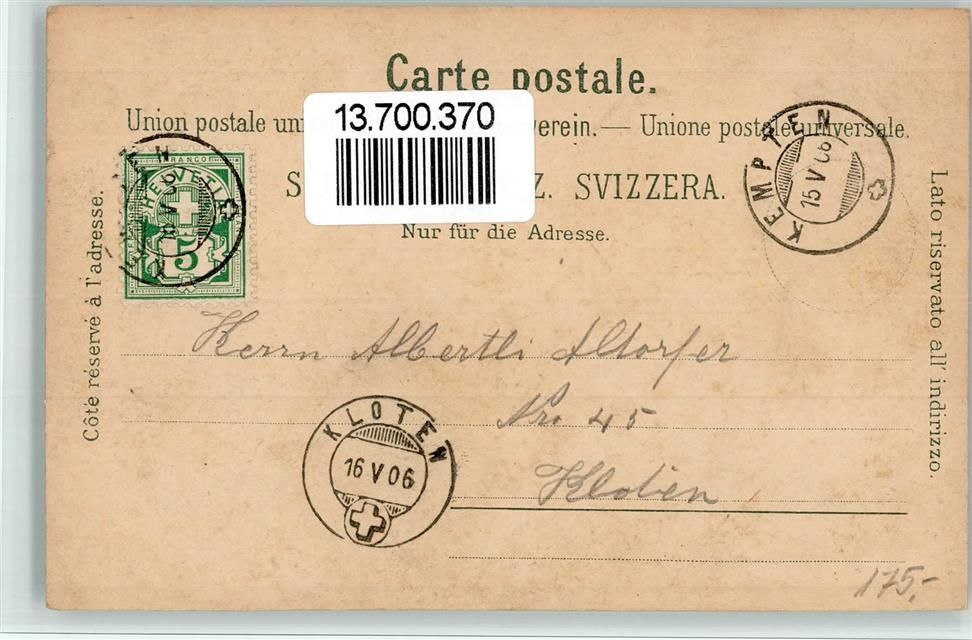 Carte postale.
13.700.370
Union postale verein.— Unione postale universale.
S Z. SVIZZERA.
Nur für die Adresse.
Côté réservé à l'adresse.
Lato riservato all' indirizzo.
FRANCO
HELVETIA
5
KEMPTEN
15 V 06
Herrn Albertli Altorfer
Nro 45
Kloten
KLOTEN
16 V 06
175.-